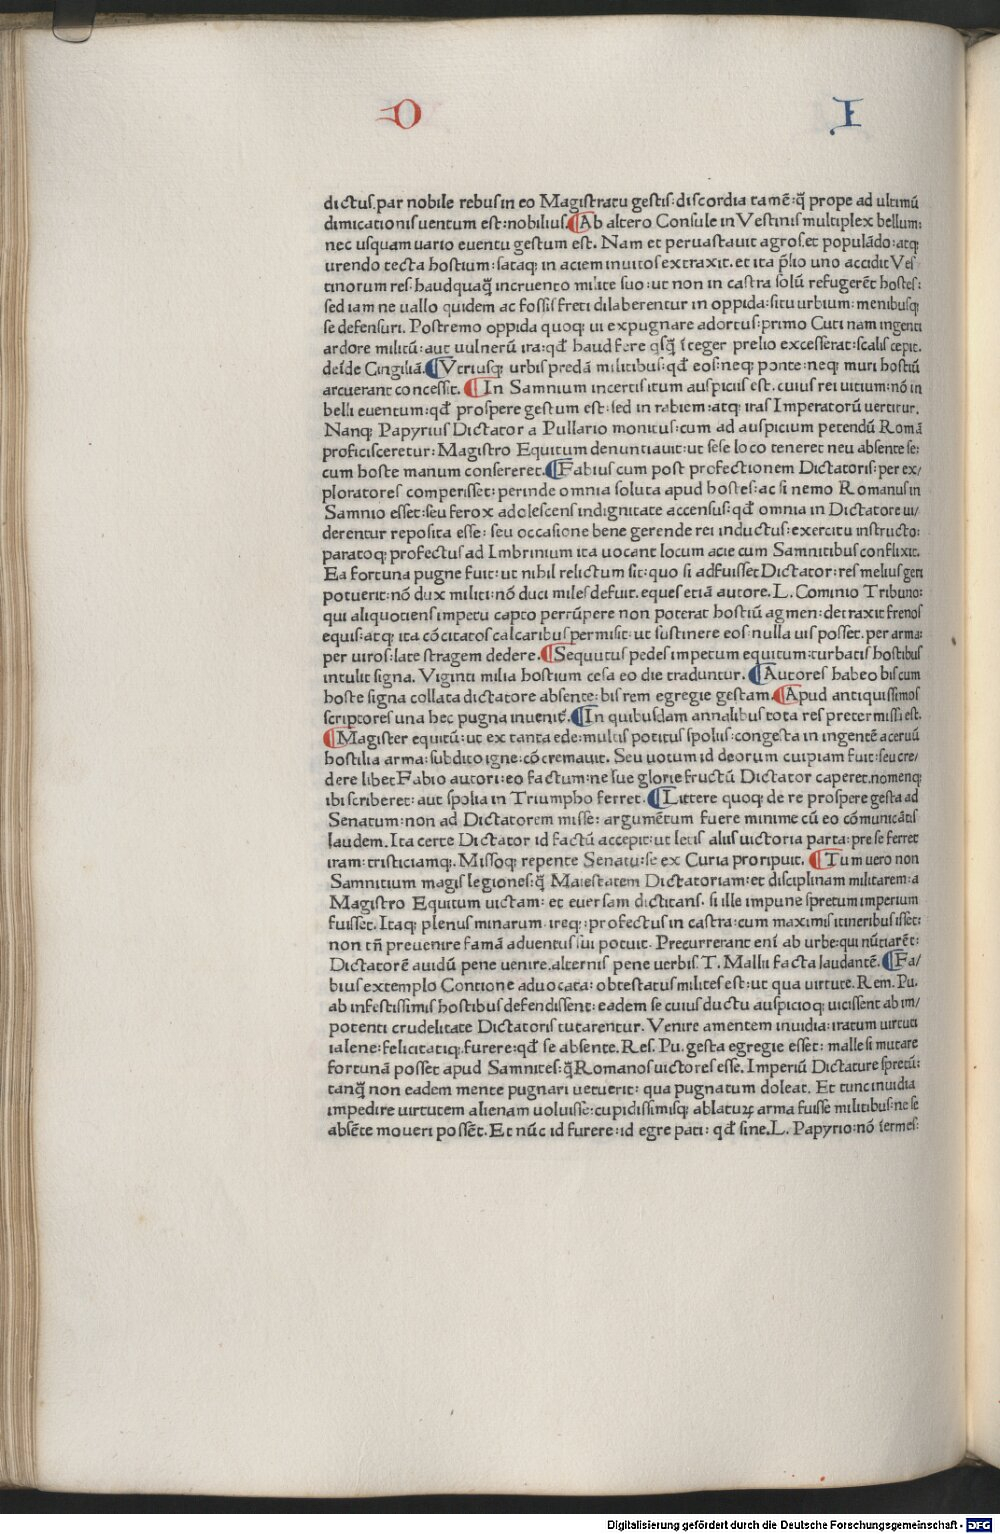 O I
dictus. par nobile rebus in eo Magistratu gestis: discordia tamē: q̄ prope ad ultimū
dimicationis uentum est: nobilius. ¶Ab altero Consule in Vestinis multiplex bellum:
nec usquam uario euentu gestum est. Nam et peruastauit agros. et populādo: atq;
urendo tecta hostium: sataq; in aciem inuitos extraxit. et ita p̄lio uno accidit Ves
tinorum res: haudquaq̄ incruento milite suo: ut non in castra solū refugerēt hostes:
sed iam ne uallo quidem ac fossis freti dilaberentur in oppida: situ urbium: menibusq;
se defensuri. Postremo oppida quoq; ui expugnare adortus: primo Cuti nam ingenti
ardore militū: aut uulnerū ira: qd̄ haud fere qsq̄ īteger prelio excesserat: scalis cepit.
deīde Cingiliā. ¶Vtriusq; urbis predā militibus: qd̄ eos: neq; ponte: neq; muri hostiū
arcuerant concessit. ¶In Samnium incertis itum auspiciis est. cuius rei uitium: nō in
belli euentum: qd̄ prospere gestum est: sed in rabiem: atq; iras Imperatorū uertitur.
Nanq; Papyrius Dictator a Pullario monitus: cum ad auspicium petendū Romā
proficisceretur: Magistro Equitum denuntiauit: ut sese loco teneret neu absente se:
cum hoste manum consereret. ¶Fabius cum post profectionem Dictatoris: per ex/
ploratores comperisset: perinde omnia soluta apud hostes: ac si nemo Romanus in
Samnio esset: seu ferox adolescens indignitate accensus: qd̄ omnia in Dictatore ui/
derentur reposita esse: seu occasione bene gerende rei inductus: exercitu instructo:
paratoq; profectus ad Imbrinium ita uocant locum acie cum Samnitibus conflixit.
Ea fortuna pugne fuit: ut nihil relictum sit: quo si adfuisset Dictator: res melius geri
potuerit: nō dux militi: nō duci miles defuit. eques etiā autore. L. Cominio Tribuno:
qui aliquotiens impetu capto perrūpere non poterat hostiū agmen: detraxit frenos
equis: atq; ita cōcitatos calcaribus permisit: ut sustinere eos: nulla uis posset. per arma:
per uiros: late stragem dedere. ¶Sequutus pedes impetum equitum: turbatis hostibus
intulit signa. Viginti milia hostium cesa eo die traduntur. ¶Autores habeo bis cum
hoste signa collata dictatore absente: bis rem egregie gestam. ¶Apud antiquissimos
scriptores una hec pugna inuenit̄. ¶In quibusdam annalibus tota res pretermissi est.
¶Magister equitū: ut ex tanta ede: multis potitus spoliis: congesta in ingentē aceruū
hostilia arma: subdito igne: cōcremauit. Seu uotum id deorum cuipiam fuit: seu cre/
dere libet Fabio autori: eo factum: ne sue glorie fructū Dictator caperet. nomenq;
ibi scriberet: aut spolia in Triumpho ferret. ¶Littere quoq; de re prospere gesta ad
Senatum: non ad Dictatorem misse: argumētum fuere minime cū eo cōmunicātis
laudem. Ita certe Dictator id factū accepit: ut letis aliis uictoria parta: pre se ferret
iram: tristiciamq;. Missoq; repente Senatu: se ex Curia proripuit. ¶Tum uero non
Samnitium magis legiones: q̄ Maiestatem Dictatoriam: et disciplinam militarem: a
Magistro Equitum uictam: et euersam dictitans. si ille impune spretum imperium
fuisset. Itaq; plenus minarum. ireq;: profectus in castra: cum maximis itineribus isset:
non tn̄ preuenire famā aduentus sui potuit. Precurrerant eni ab urbe: qui nūtiarēt:
Dictatorē auidū pene uenire. alternis pene uerbis. T. Mallii facta laudantē. ¶Fa/
bius extemplo Contione aduocata: obtestatus milites est: ut qua uirtute. Rem. Pu.
ab infestissimis hostibus defendissent: eadem se cuius ductu auspicioq; uicissent ab im/
potenti crudelitate Dictatoris tutarentur. Venire amentem inuidia: iratum uirtuti
ialene: felicitatiq;. furere: qd̄ se absente. Res. Pu. gesta egregie esset: malle si mutare
fortunā posset apud Samnites: q̄ Romanos uictores esse. Imperiū Dictature spretū:
tanq̄ non eadem mente pugnari uetuerit: qua pugnatum doleat. Et tunc inuidia
impedire uirtutem alienam uoluisse: cupidissimisq; ablatuꝝ arma fuisse militibus: ne se
absēte moueri possēt. Et nūc id furere: id egre pati: qd̄ sine. L. Papyrio: nō īermes:
Digitalisierung gefördert durch die Deutsche Forschungsgemeinschaft - DFG